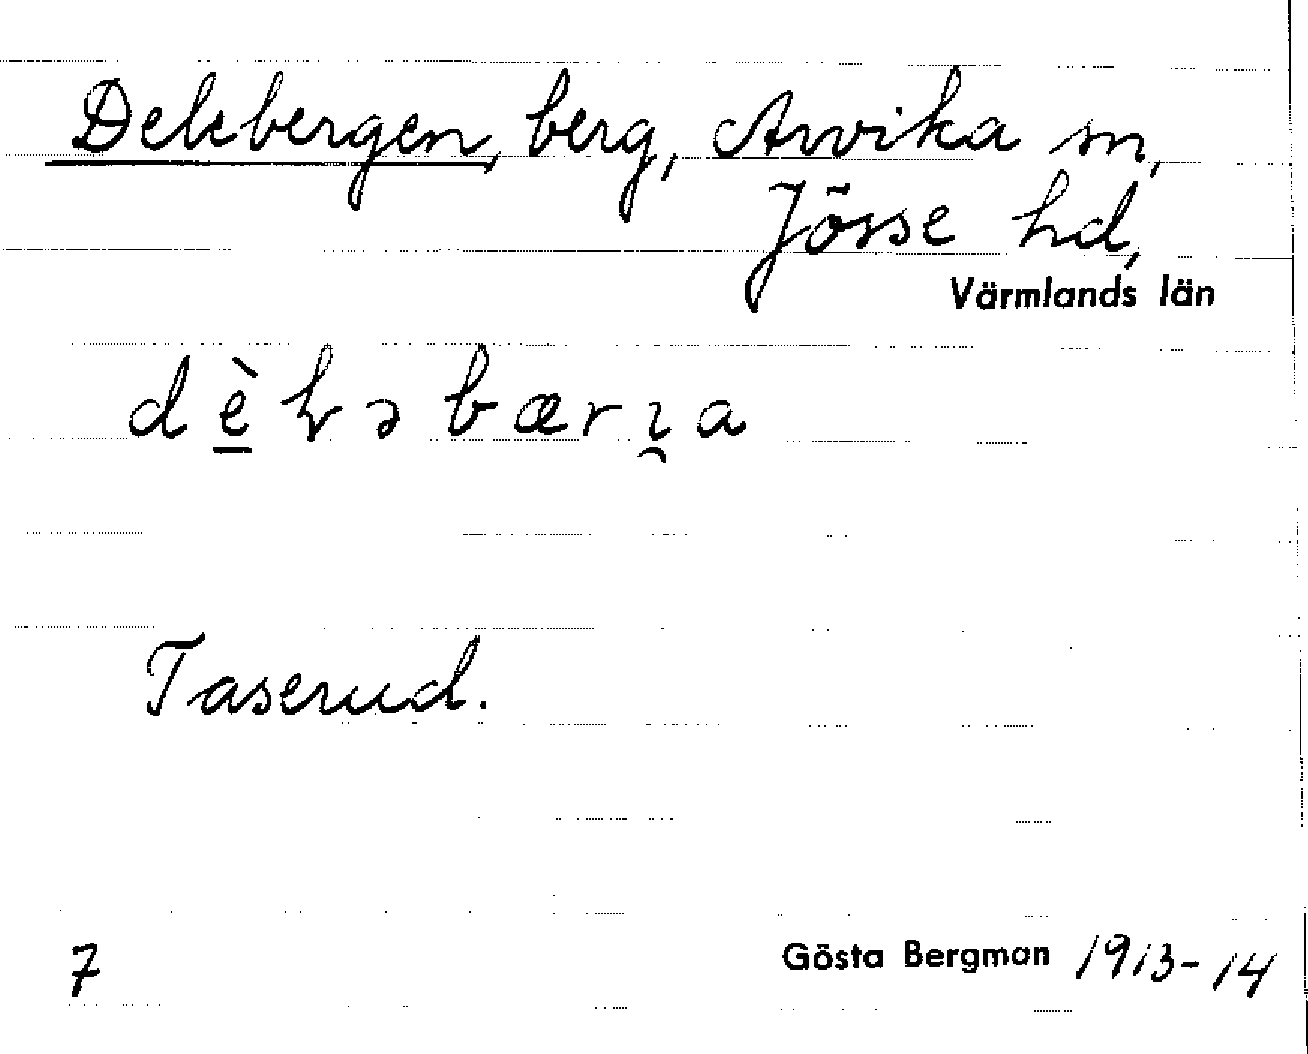 Delebergen, berg, Arvika sn,
Jösse hd,
Värmlands län
d è̲ ɽ ə b æ r ı̯ a
Taserud.
7 Gösta Bergman 1913-14